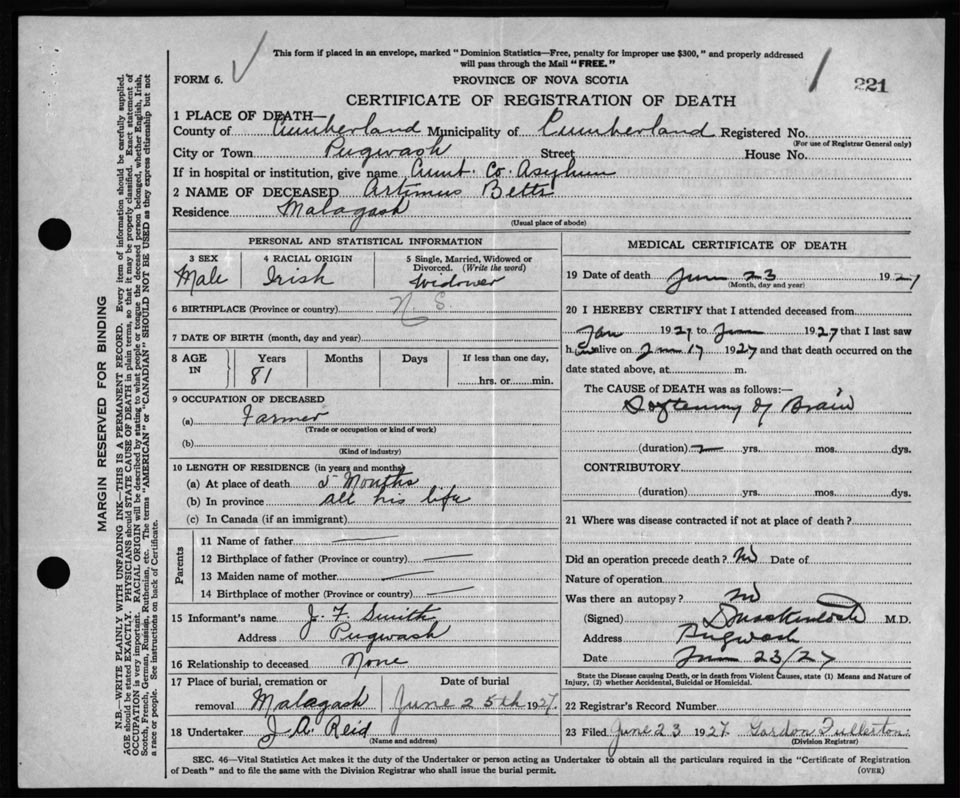 This form if placed in an envelope, marked "Dominion Statistics—Free, penalty for improper use $300," and properly addressed
will pass through the Mail "FREE."
FORM 6.
PROVINCE OF NOVA SCOTIA
221
CERTIFICATE OF REGISTRATION OF DEATH
1 PLACE OF DEATH—
County of Cumberland Municipality of Cumberland Registered No.
(For use of Registrar General only)
City or Town Pugwash Street House No.
If in hospital or institution, give name Cumt. Co. Asylum
2 NAME OF DECEASED Artimus Betts
Residence Malagash
(Usual place of abode)
PERSONAL AND STATISTICAL INFORMATION
3 SEX 4 RACIAL ORIGIN 5 Single, Married, Widowed or
Divorced. (Write the word)
Male Irish Widower
6 BIRTHPLACE (Province or country) N S.
7 DATE OF BIRTH (month, day and year)
8 AGE IN Years Months Days If less than one day,
81 hrs. or min.
9 OCCUPATION OF DECEASED
(a) Farmer
(Trade or occupation or kind of work)
(b)
(Kind of industry)
10 LENGTH OF RESIDENCE (in years and months)
(a) At place of death 5 Months
(b) In province all his life
(c) In Canada (if an immigrant)
Parents
11 Name of father
12 Birthplace of father (Province or country)
13 Maiden name of mother
14 Birthplace of mother (Province or country)
15 Informant's name J. F. Smith
Address Pugwash
16 Relationship to deceased None
17 Place of burial, cremation or Date of burial
removal Malagash June 25th 1927.
18 Undertaker J. A. Reid
(Name and address)
MEDICAL CERTIFICATE OF DEATH
19 Date of death June 23 1927
(Month, day and year)
20 I HEREBY CERTIFY that I attended deceased from
Jan 1927 to June 1927 that I last saw
h im alive on June 17 1927 and that death occurred on the
date stated above, at m.
The CAUSE OF DEATH was as follows:—
Softening of Brain
(duration) yrs. mos. dys.
CONTRIBUTORY
(duration) yrs. mos. dys.
21 Where was disease contracted if not at place of death?
Did an operation precede death? No Date of
Nature of operation
Was there an autopsy? No
(Signed) M.D.
Address Pugwash
Date June 23/27
State the Disease causing Death, or in death from Violent Causes, state (1) Means and Nature of
Injury, (2) whether Accidental, Suicidal or Homicidal.
22 Registrar's Record Number
23 Filed June 23 1927. Gordon Fullerton.
(Division Registrar)
SEC. 46—Vital Statistics Act makes it the duty of the Undertaker or person acting as Undertaker to obtain all the particulars required in the "Certificate of Registration
of Death" and to file the same with the Division Registrar who shall issue the burial permit.
(OVER)
MARGIN RESERVED FOR BINDING
N.B.—WRITE PLAINLY WITH UNFADING INK—THIS IS A PERMANENT RECORD. Every item of information should be carefully supplied.
AGE should be stated EXACTLY. PHYSICIANS should STATE CAUSE OF DEATH in plain terms, so that it may be properly classified. Exact statement of
OCCUPATION is very important. RACIAL ORIGIN will be described by stating to what people or tongue the deceased person belonged, whether English, Irish,
Scotch, French, German, Russian, Ruthenian, etc. The terms "AMERICAN" or "CANADIAN" SHOULD NOT BE USED as they express citizenship but not
a race or people. See instructions on back of Certificate.